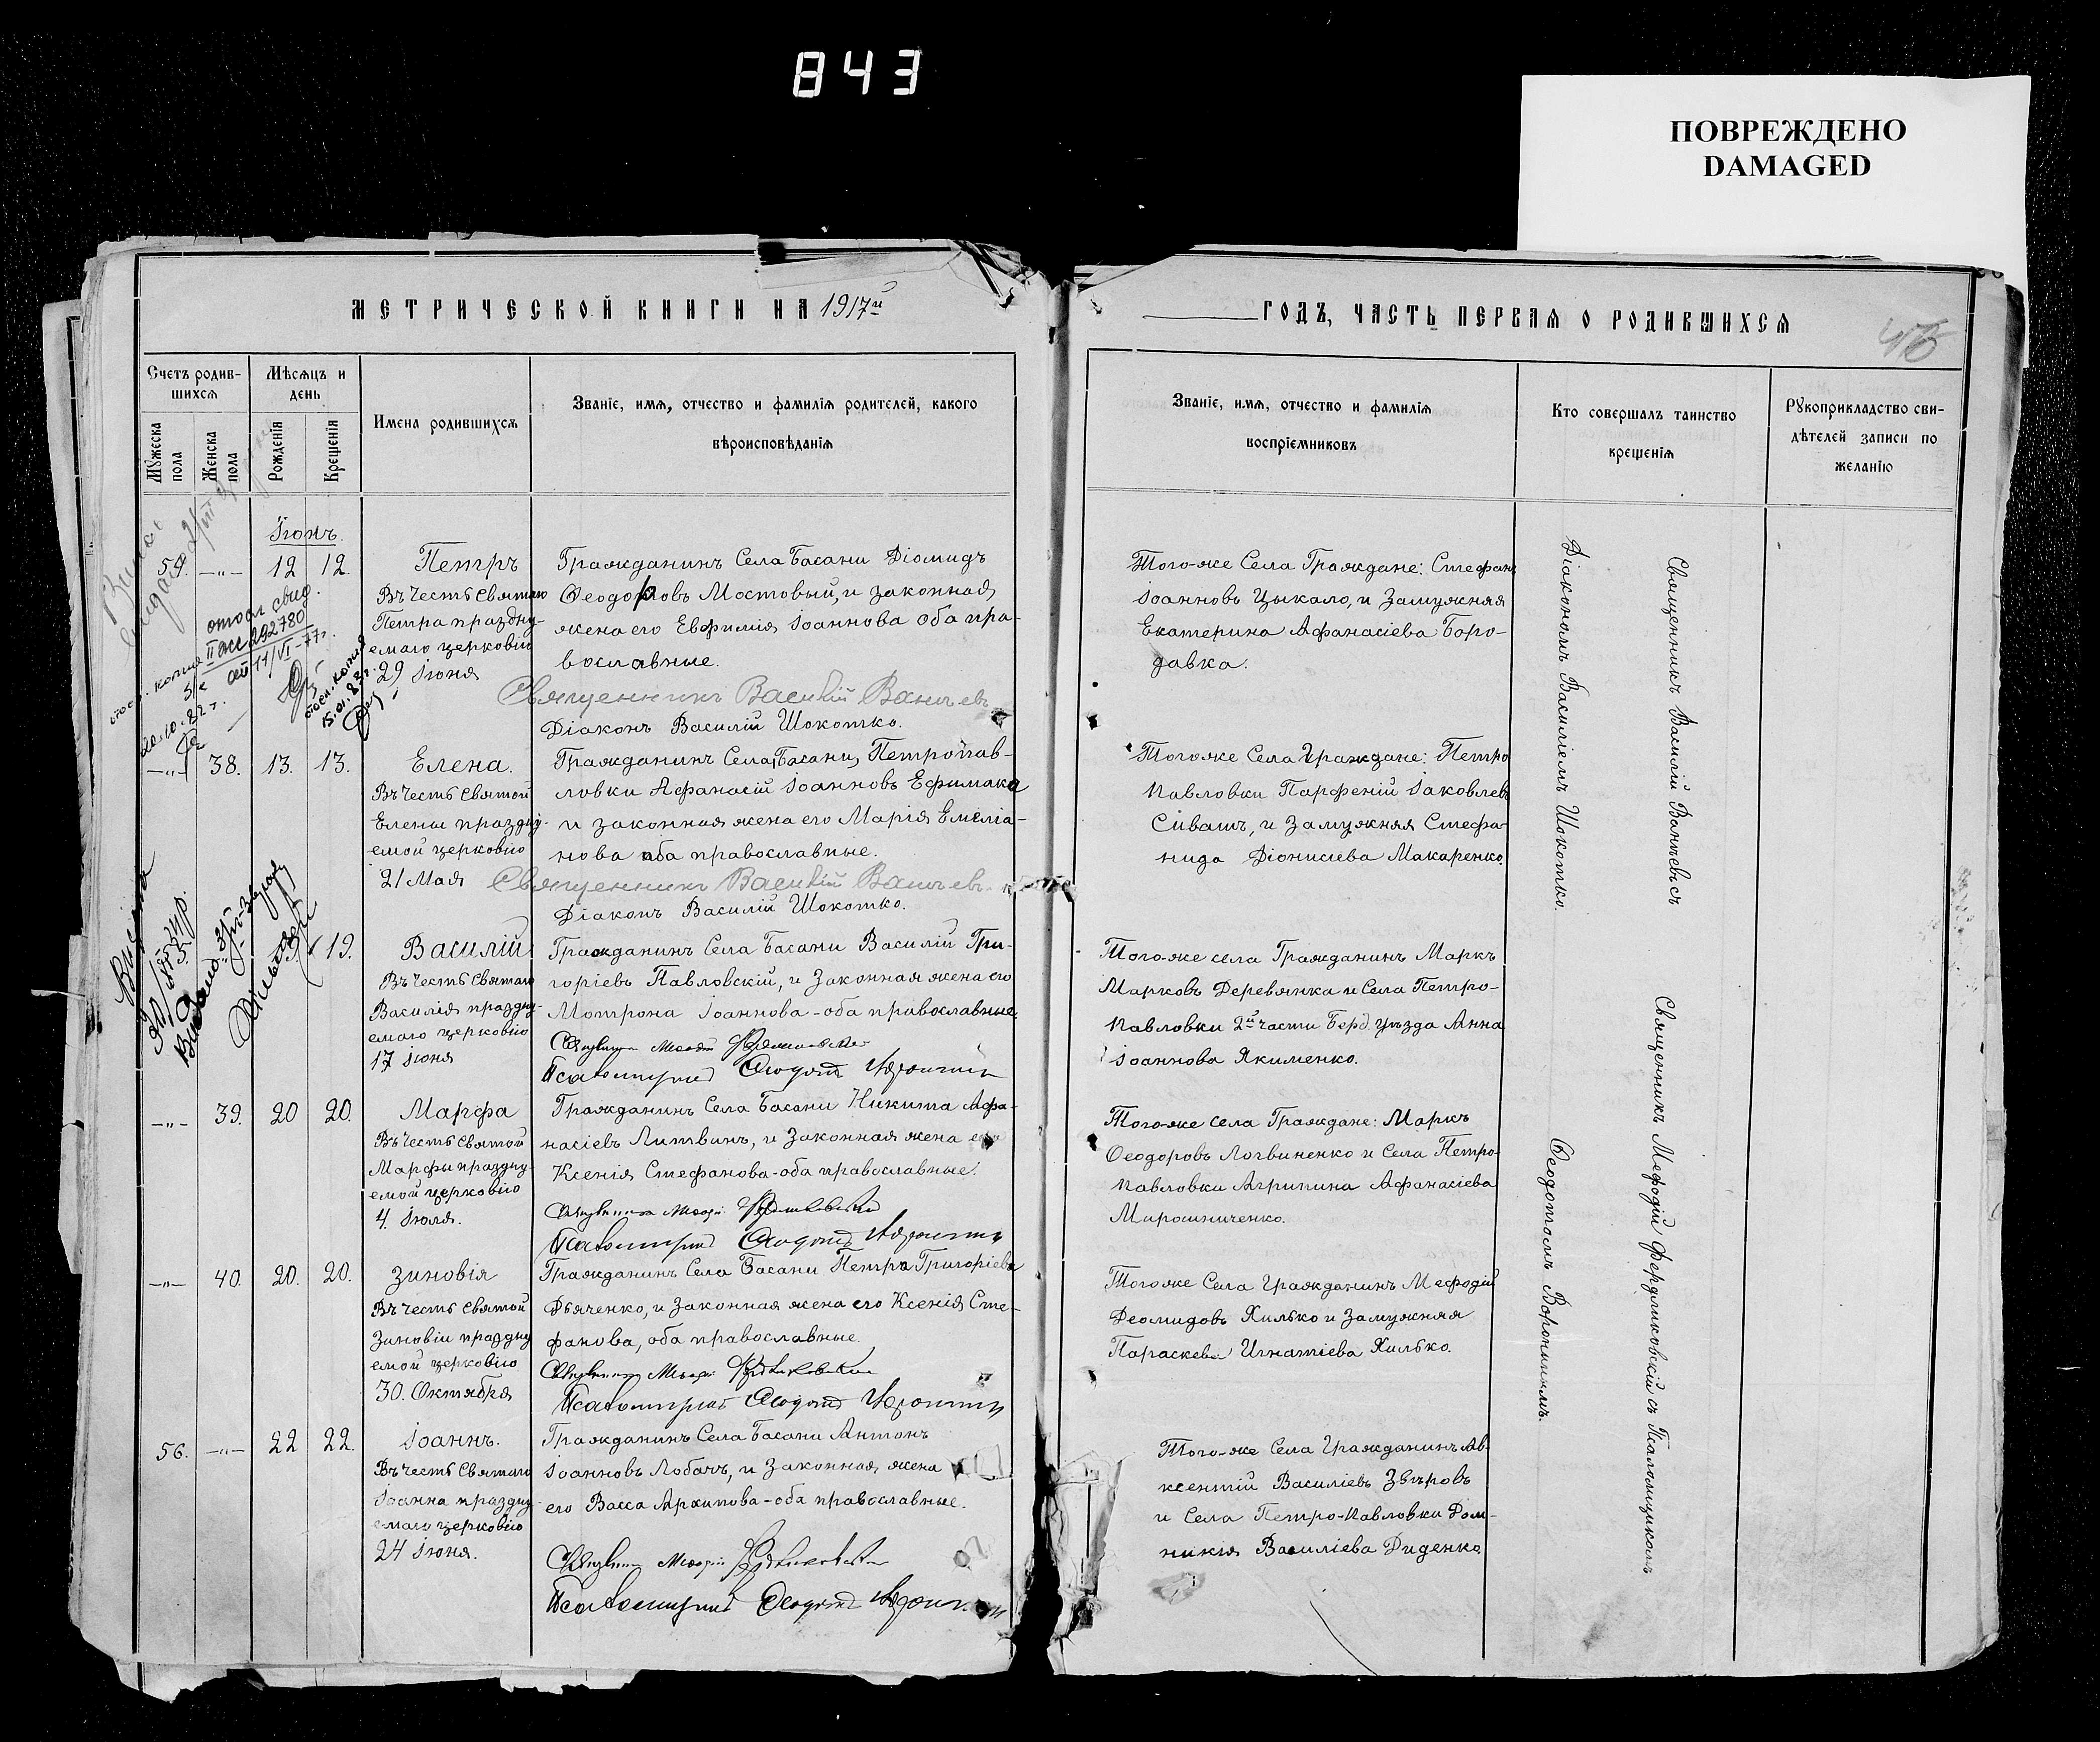 843
ПОВРЕЖДЕНО
DAMAGED
МЕТРИЧЕСКОЙ КНИГИ НА 1917й
ГОДЪ, ЧАСТЬ ПЕРВАЯ О РОДИВШИХСЯ
46
Счетъ родив-
шихся
Мѣсяцъ и
день
Мужеска
пола
Женска
пола
Рожденія
Крещенія
Имена родившихся
Званіе, имя, отчество и фамилія родителей, какого
вѣроисповѣданія
Званіе, имя, отчество и фамилія
воспріемниковъ
Кто совершалъ таинство
крещенія
Рукоприкладство сви-
дѣтелей записи по
желанію
Іюнь.
54. —"— 12 12.
Петръ
Въ честь Святаго
Петра праздну-
емаго церковію
29 Іюня
Гражданинъ Села Басани Діомидъ
Ѳеодоровъ Мостовый, и законная
жена его Евфимія Іоаннова оба пра-
вославные.
Священникъ Василій
Діаконъ Василій Шокотко.
Того-же Села Граждане: Стефанъ
Іоанновъ Цыкало, и Замужняя
Екатерина Афанасіева Боро-
давка.
отосл свид.
292780
от 11/VI-77г.
отосл. копия
15.01.82г.
20.10.82г.
—"— 38. 13. 13.
Елена.
Въ честь Святой
Елены праздну-
емой церковію
21 Мая
Гражданинъ Села Басани, Петропав-
ловки Афанасій Іоанновъ Ефимака
и законная жена его Марія Емеліа-
нова оба православные.
Священникъ Василій
Діаконъ Василій Шокотко.
Того-же Села Граждане: Петро
Павловки Парфеній Іаковлевъ
Сивашъ, и Замужняя Стефа-
нида Діонисіева Макаренко.
19.
Василій
Въ честь Святаго
Василія праздну-
емаго церковію
17 Іюня
Гражданинъ Села Басани Василій Гри-
горіевъ Павловскій, и Законная жена его
Мотрона Іоаннова - оба православные.
Псаломщикъ Ѳеодотъ Воронинъ
Того-же села Гражданинъ Маркъ
Марковъ Деревянка и Села Петро-
Павловки 2й части Берд. уѣзда Анна
Іоаннова Якименко.
—"— 39. 20 20.
Марфа
Въ честь Святой
Марфы праздну-
емой церковію
4 Іюля.
Гражданинъ Села Басани Никита Афа-
насіевъ Литвинъ, и Законная жена его
Ксенія Стефанова - оба православные.
Псаломщикъ Ѳеодотъ Воронинъ
Того-же села Граждане: Маркъ
Ѳеодоровъ Логвиненко и Села Петро-
Павловки Агрипина Афанасіева
Мирошниченко.
—"— 40. 20. 20.
Зиновія
Въ честь Святой
Зиновіи праздну
емой церковію
30. Октября
Гражданинъ Села Басани Петръ Григоріевъ
Дьяченко, и Законная жена его Ксенія Сте-
фанова, оба православные.
Псаломщикъ Ѳеодотъ Воронинъ
Того-же Села Гражданинъ Мефодій
Деомидовъ Хилько и Замужняя
Параскева Игнатіева Хилько.
56. —"— 22 22.
Іоаннъ.
Въ честь Святаго
Іоанна праздну-
емаго церковію
24 Іюня.
Гражданинъ Села Басани Антонъ
Іоанновъ Лобачъ, и Законная жена
его Васса Архипова - оба православные.
Псаломщикъ Ѳеодотъ Воронинъ
Того-же Села Гражданинъ Ав-
ксентій Василіевъ Звѣровъ
и Села Петро-Павловки Дом-
никія Василіева Диденко.
Священникъ Василій Ваньевъ съ
Діакономъ Василіемъ Шокотко.
Священникъ Мефодій Фердликовскій съ Псаломщикомъ
Ѳеодотомъ Воронинымъ.